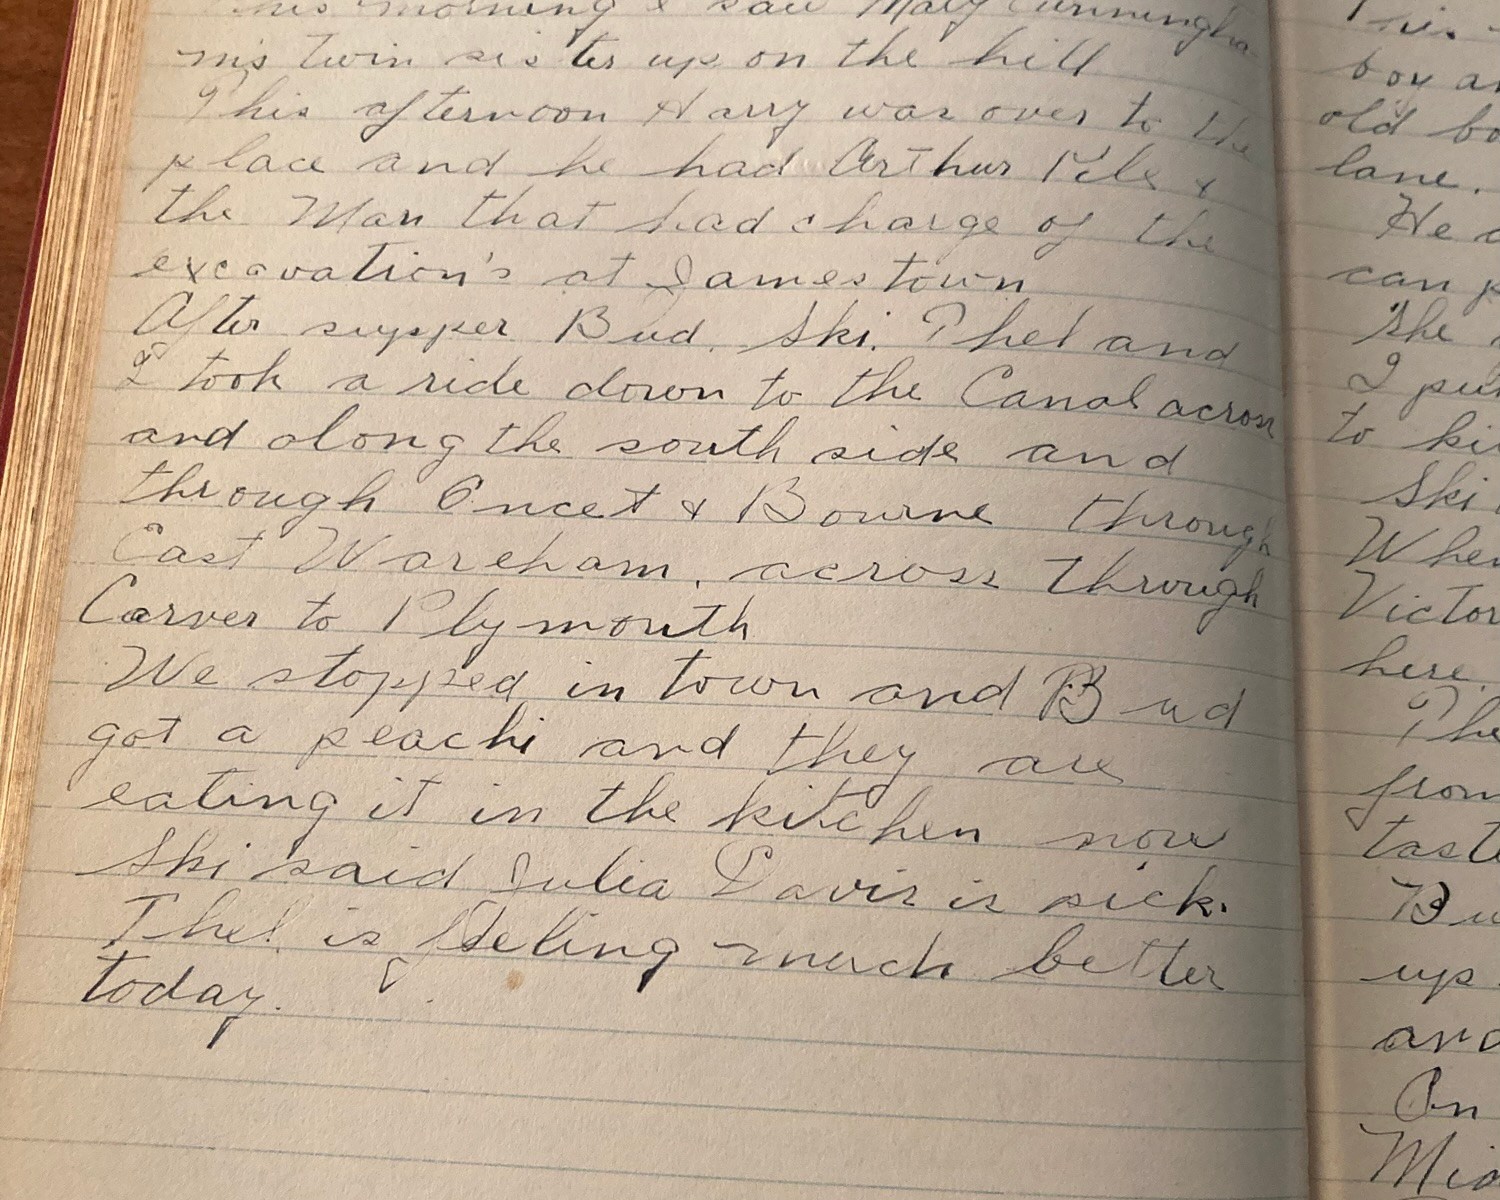 This morning I saw Mary Cunningha
m's twin sister up on the hill
This afternoon Harry was over to the
place and he had Arthur Pyle &
the Man that had charge of the
excavation's at Jamestown
After supper Bud, Ski, Thel and
I took a ride down to the Canal across
and along the south side and
through Oncet & Bourne through
East Wareham, across through
Carver to Plymouth
We stopped in town and Bud
got a peach and they are
eating it in the kitchen now
Ski said Julia Davis is sick.
Thel is feeling much better
today.
This
boy
old
lane.
He
can
She
I put
to
Ski
When
here.
from
up
and
On